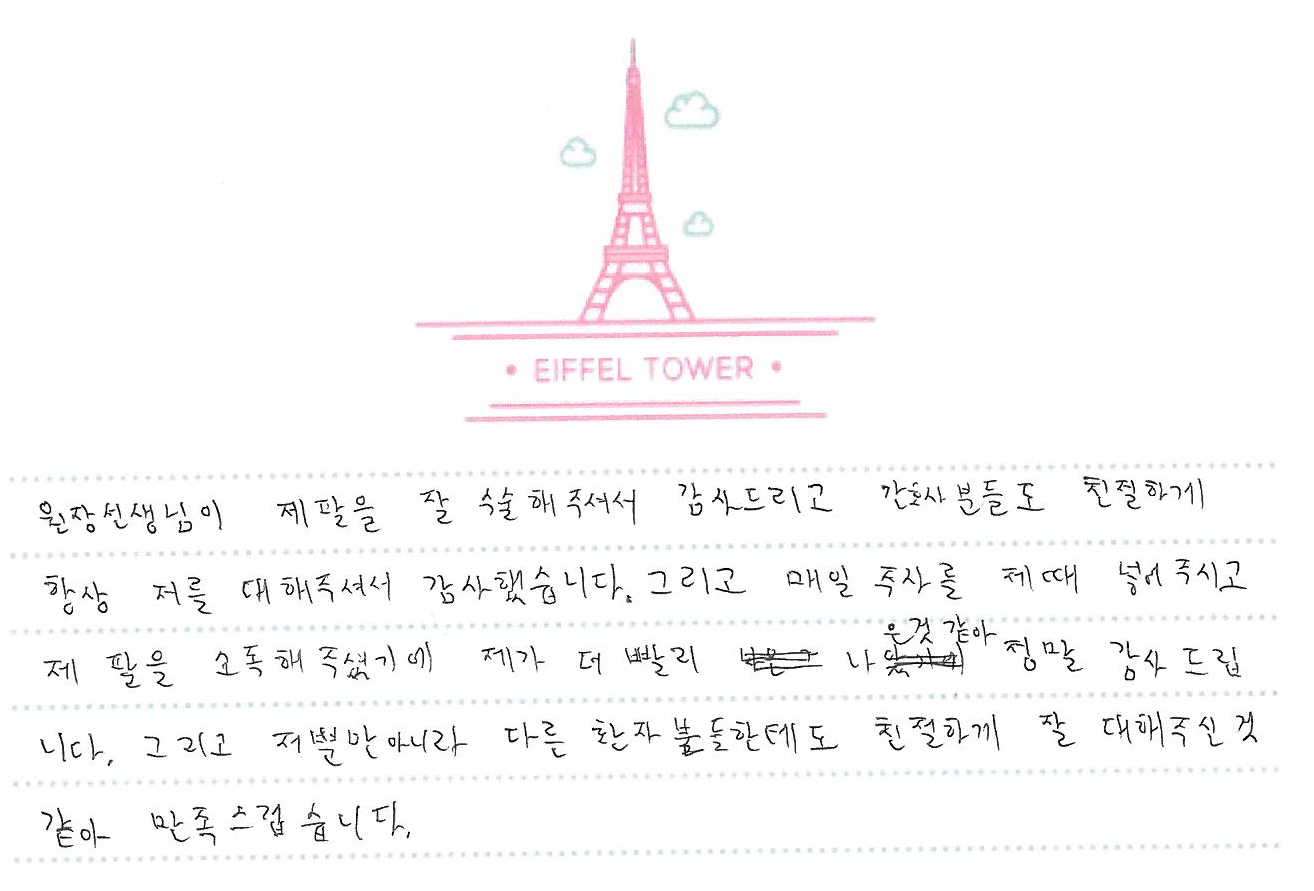 • EIFFEL TOWER •
원장선생님이 제팔을 잘 수술해주셔서 감사드리고 간호사분들도 친절하게
항상 저를 대해주셔서 감사했습니다. 그리고 매일 주사를 제때 넣어주시고
제 팔을 소독해주셨기에 제가 더 빨리 나은것 같아 정말 감사드립
니다. 그리고 저뿐만아니라 다른 환자분들한테도 친절하게 잘 대해주신 것
같아 만족스럽습니다.